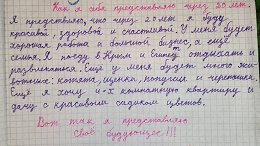 Как я себя представляю через 20 лет.
Я представляю, что через 20 лет я буду
красивой, здоровой и счастливой. У меня будет
хорошая работа и большой бизнес, а ещё
семья. Я поеду в Крым и Египет отдыхать и
развлекаться. Ещё у меня будет много жи-
вотных: котята, щенки, попугаи и черепашка.
Ещё я хочу 4-х комнатную квартиру и
дачу с красивым садиком цветов.
Вот так я представляю
своё будующее!!!